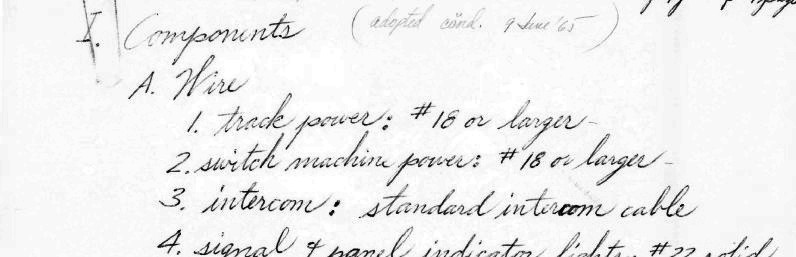 I. Components (adopted cond. 9 June '65)
A. Wire
1. track power: #18 or larger -
2. switch machine power: #18 or larger -
3. intercom: standard intercom cable
4. signal & panel indicator lights: #22 solid